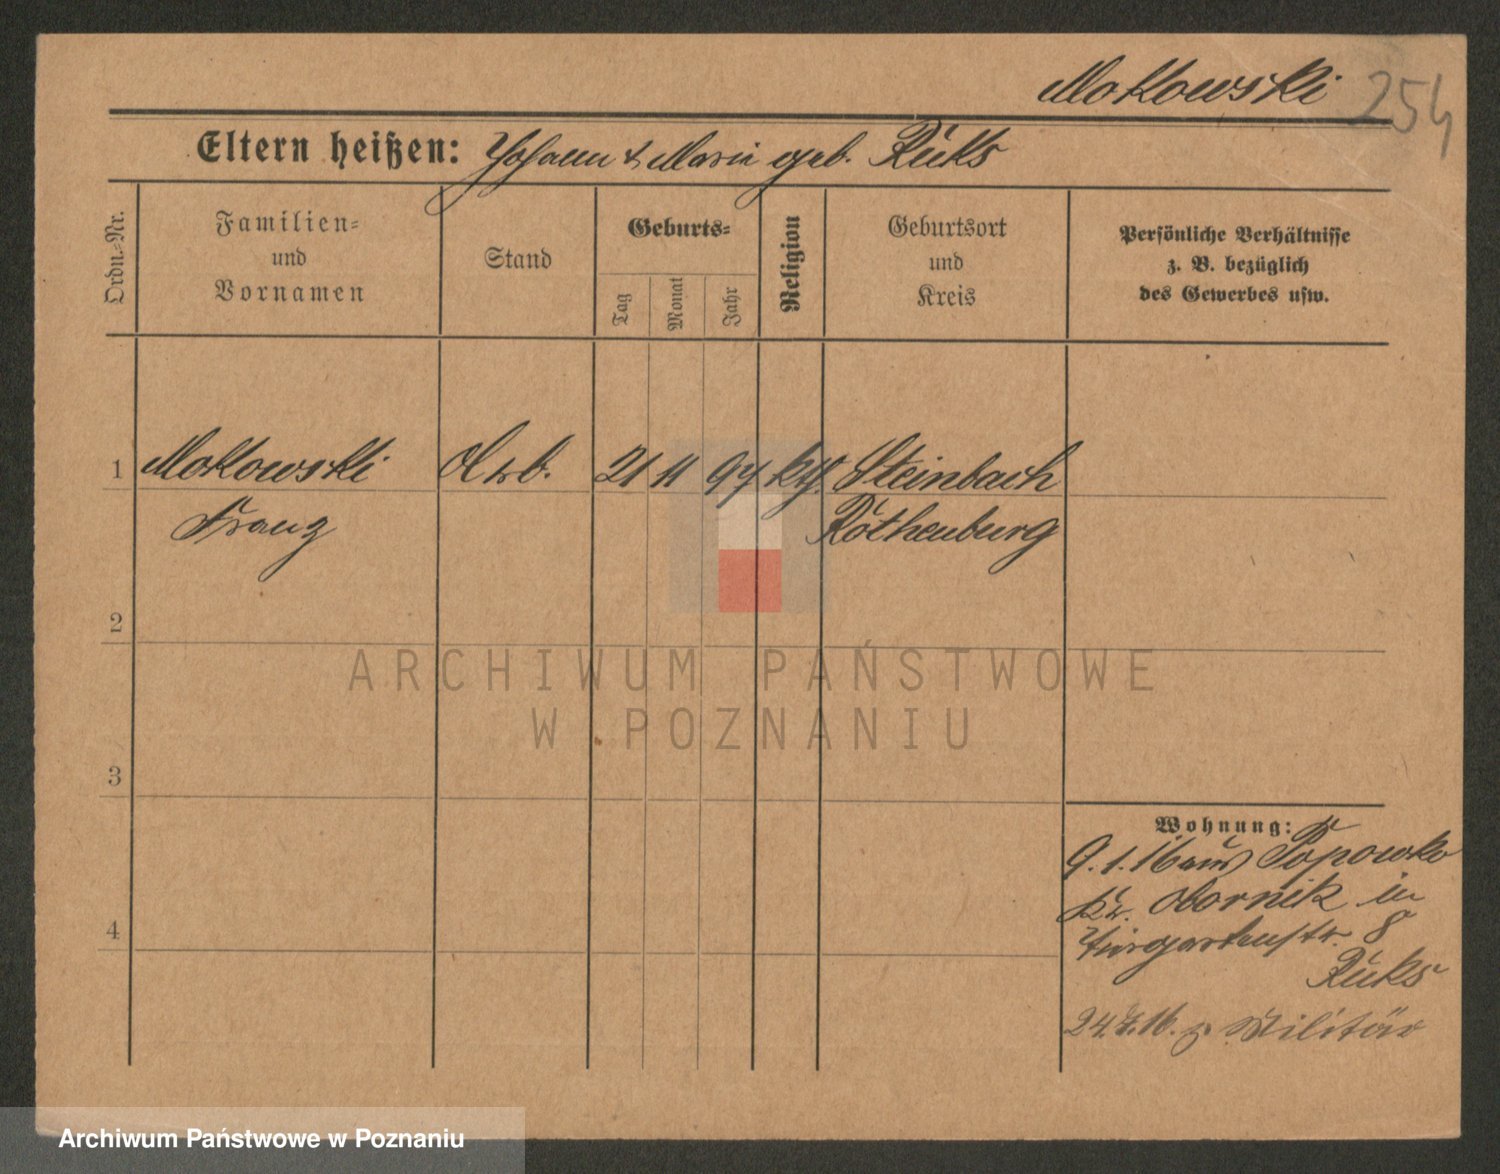 Mokowski 254
Eltern heißen: Johann & Marie geb. Ricks
Ordn.-Nr.
Familien-
und
Vornamen
Stand
Geburts-
Tag
Monat
Jahr
Religion
Geburtsort
und
Kreis
Persönliche Verhältnisse
z. B. bezüglich
des Gewerbes usw.
1 Mokowski Arb. 21 11 97 kth. Steinbach
Franz Rothenburg
2
ARCHIWUM PAŃSTWOWE
W POZNANIU
3
Wohnung:
9.1.16 aus Popowko
Kr. Obornik in
Tiergartenstr. 8
Ricks
4
24.7.16. z. Militär
Archiwum Państwowe w Poznaniu